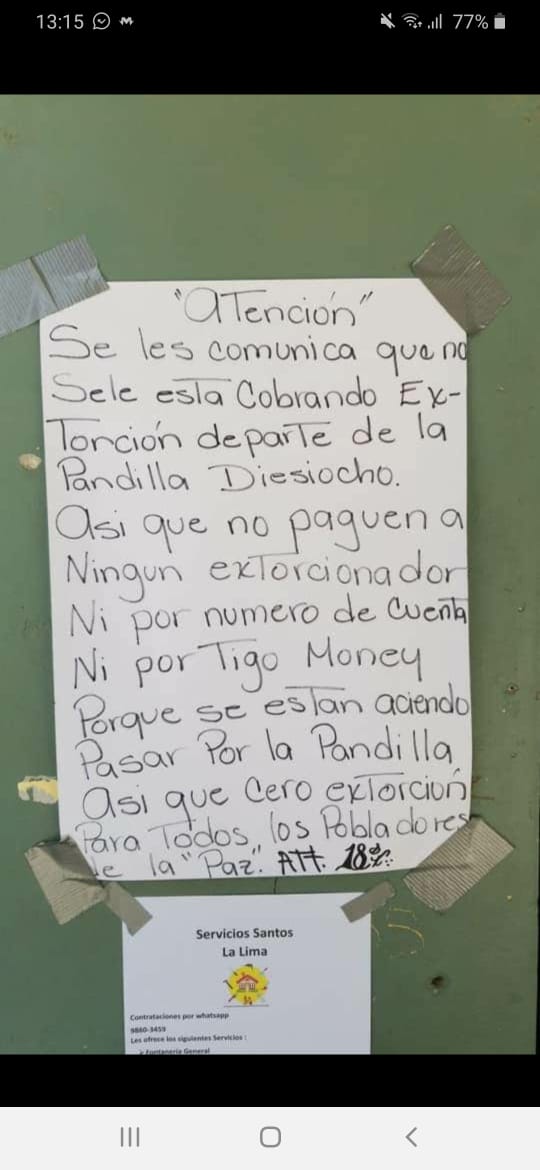 13:15 77%
"aTención"
Se les comunica que no
Sele esTa Cobrando Ex-
Torción de parTe de la
Pandilla Diesiocho.
asi que no paguen a
Ningun exTorcionador
Ni por numero de Cuenta
Ni por Tigo Money
Porque se esTan aciendo
Pasar Por la Pandilla
asi que Cero exTorcion
Para Todos los Pobladores
de la "Paz". ATT. 18
Servicios Santos
La Lima
Contrataciones por whatsapp
9860-3459
Les ofrece los siguientes Servicios :
Fontanería General